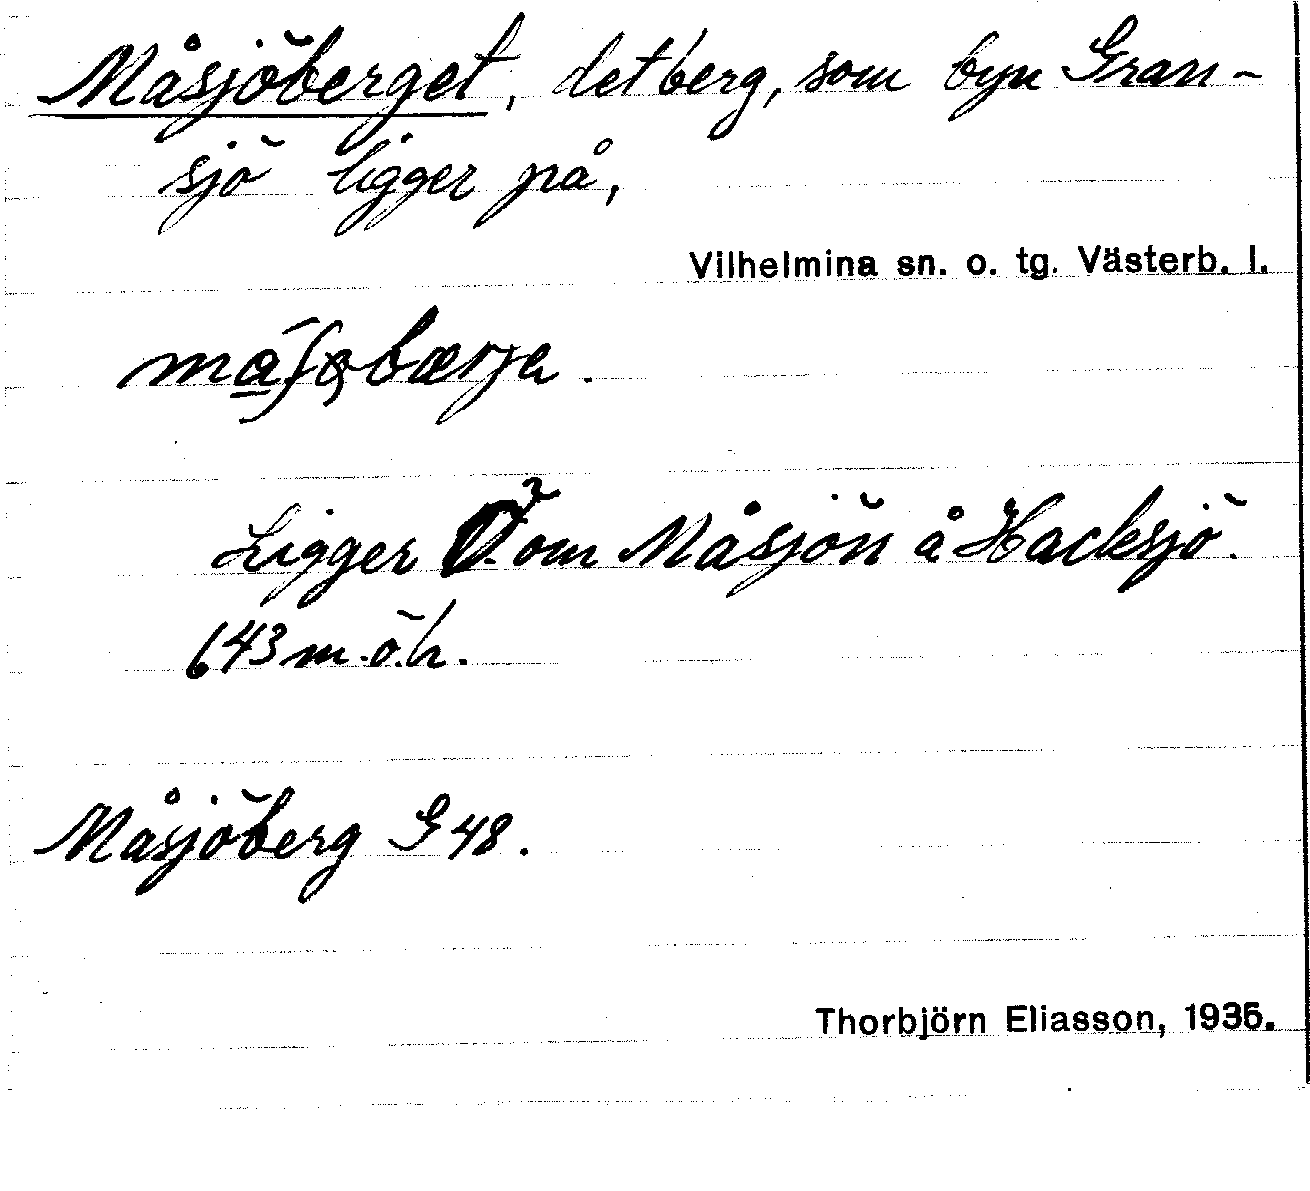 Måsjöberget, det berg, som byn Gran-
sjö ligger på,
Vilhelmina sn. o. tg. Västerb. l.
Ligger Ö. om Måsjön å Hacksjö.
643 m.ö.h.
Måsjöberg G 48.
Thorbjörn Eliasson, 1935.